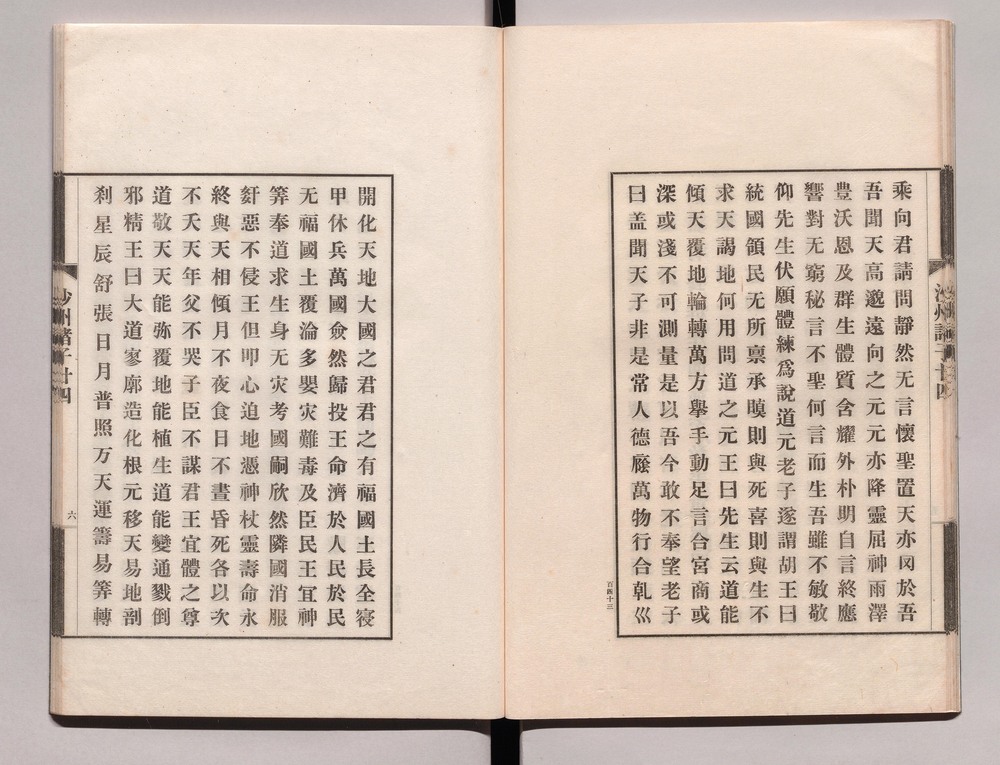 乘向君請問靜然无言懷聖置天亦囦於吾
吾聞天高邈遠向之元元亦降靈屈神雨澤
豊沃恩及群生體質含耀外朴明自言終應
響對无窮秘言不聖何言而生吾雖不敏敬
仰先生伏願體練爲說道元老子遂謂胡王曰
統國領民无所禀承瞋則與死喜則與生不
求天謁地何用問道之元王曰先生云道能
傾天覆地輪轉萬方擧手動足言合宮商或
深或淺不可測量是以吾今敢不奉望老子
曰盖聞天子非是常人德廕萬物行合乹巛
百四十三
開化天地大國之君君之有福國土長全寑
甲休兵萬國僉然歸投王命濟於人民於民
无福國土覆淪多嬰灾難毒及臣民王冝神
筭奉道求生身无灾考國嗣欣然隣國消服
姧惡不侵王但叩心迫地憑神杖靈壽命永
終與天相傾月不夜食日不晝昏死各以次
不夭天年父不哭子臣不謀君王宜體之尊
道敬天天能弥覆地能植生道能變通戮倒
邪精王曰大道寥廓造化根元移天易地剖
刹星辰舒張日月普照万天運籌易筭轉
沙州諸子廿四
六